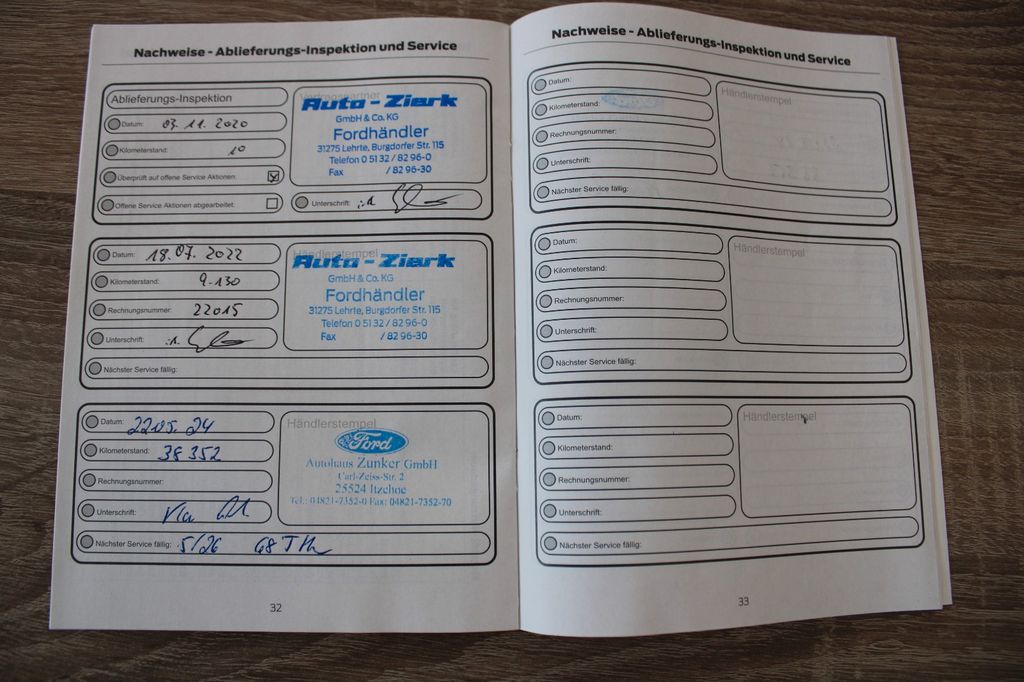 Nachweise - Ablieferungs-Inspektion und Service
Ablieferungs-Inspektion
Datum: 03.11.2020
Kilometerstand: 10
Überprüft auf offene Service Aktionen:
Offene Service Aktionen abgearbeitet:
Vertragspartner
Auto - Ziark
GmbH & Co. KG
Fordhändler
31275 Lehrte, Burgdorfer Str. 115
Telefon 0 51 32 / 82 96-0
Fax / 82 96-30
Unterschrift: i.A.
Datum: 18.07. 2022
Kilometerstand: 9.130
Rechnungsnummer: 22015
Unterschrift: i.A.
Nächster Service fällig:
Händlerstempel
Auto - Ziark
GmbH & Co. KG
Fordhändler
31275 Lehrte, Burgdorfer Str. 115
Telefon 0 51 32 / 82 96-0
Fax / 82 96-30
Datum: 22.05.24
Kilometerstand: 38 352
Rechnungsnummer:
Unterschrift:
Nächster Service fällig: 5/26 68 T
Händlerstempel
Ford
Autohaus Zunker GmbH
Carl-Zeiss-Str. 2
25524 Itzehoe
Tel.: 04821-7352-0 Fax: 04821-7352-70
32
Nachweise - Ablieferungs-Inspektion und Service
Datum:
Kilometerstand:
Rechnungsnummer:
Unterschrift:
Nächster Service fällig:
Händlerstempel
Datum:
Kilometerstand:
Rechnungsnummer:
Unterschrift:
Nächster Service fällig:
Händlerstempel
Datum:
Kilometerstand:
Rechnungsnummer:
Unterschrift:
Nächster Service fällig:
Händlerstempel
33